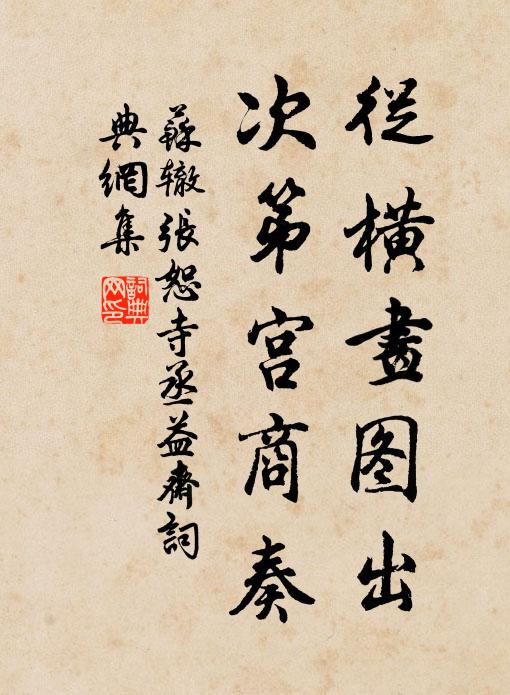 從橫畫图出
次第宫商奏
蘇辙張恕寺丞益齋詞
典網集
詞典
网印